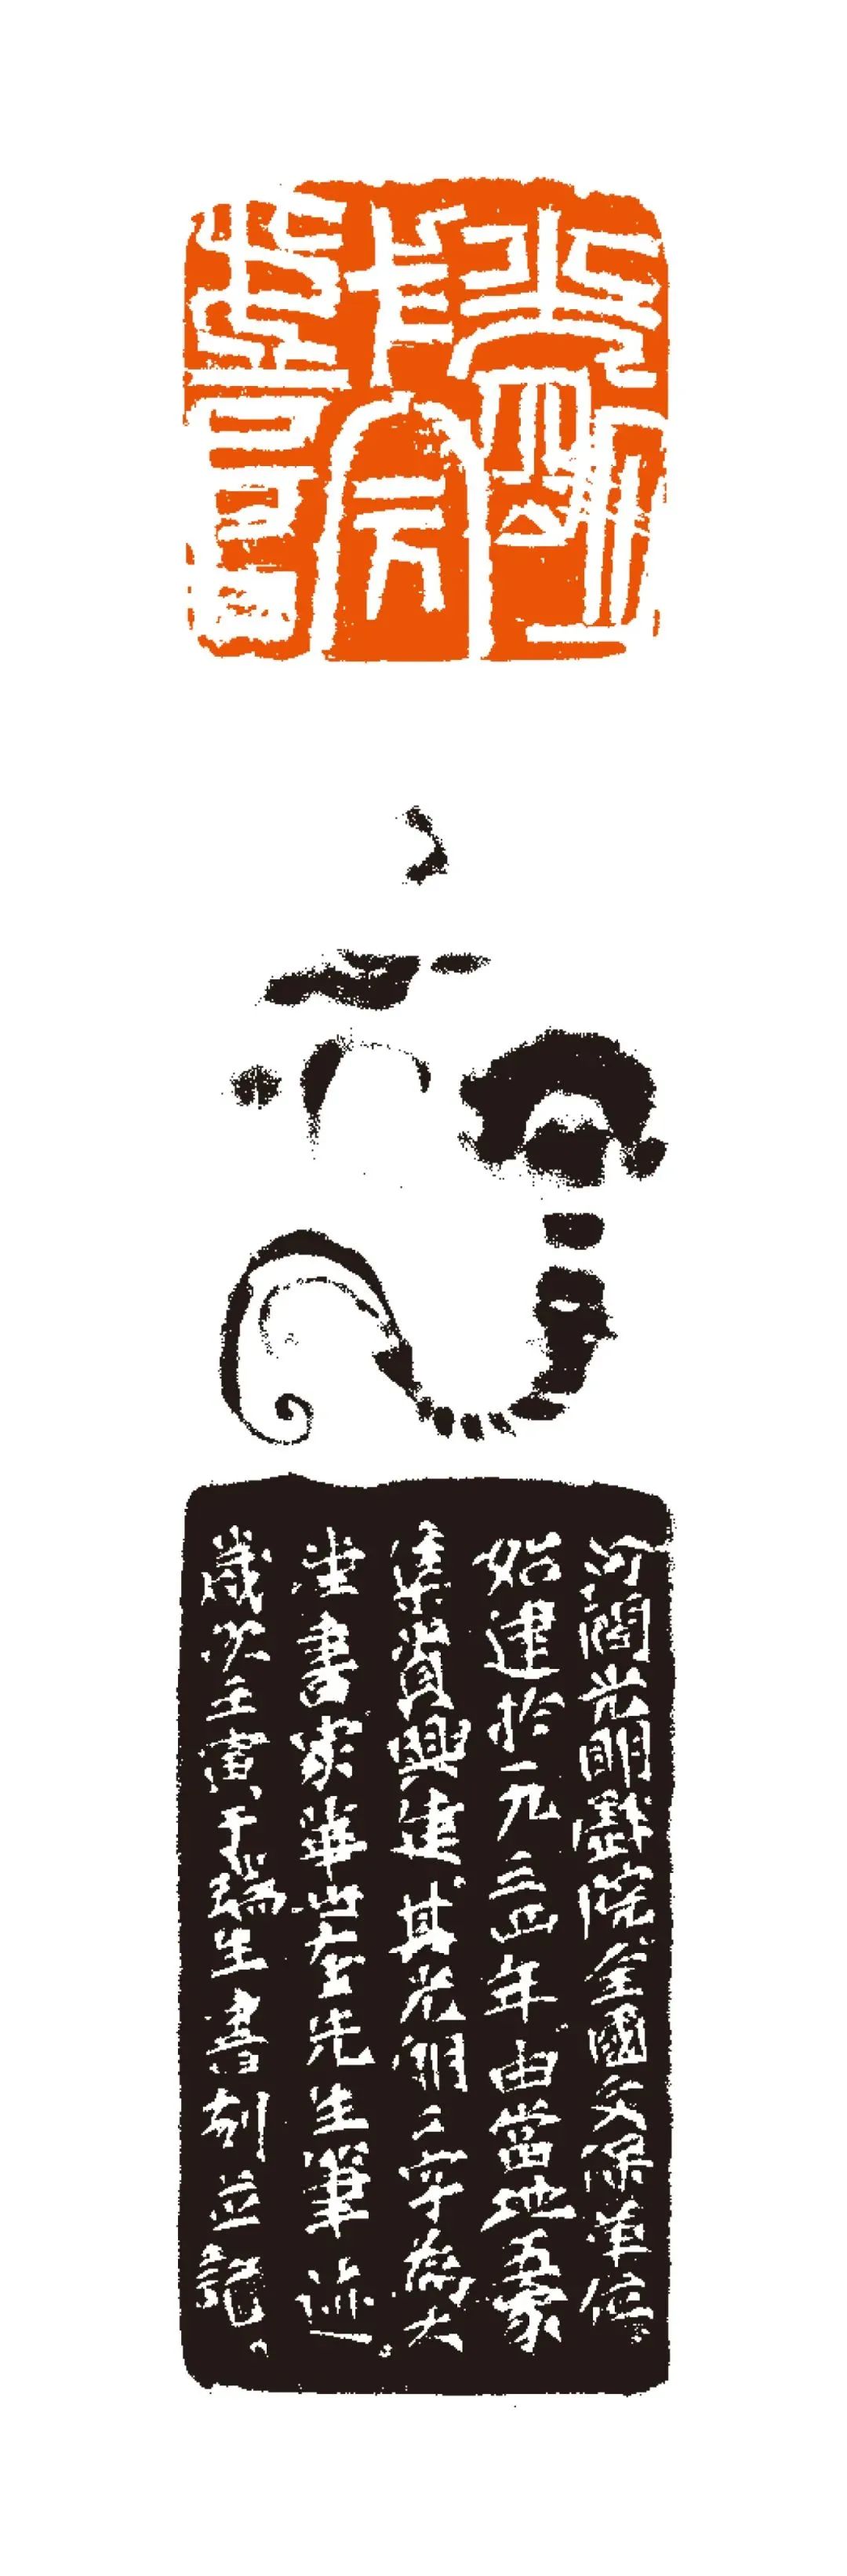 光明戲院
河間光明戲院全國文保單位。
始建於一九三四年由當地豪
集資興建其光明二字為大
津書家華世奎先生筆迹。
歲次壬寅于瑞生書刻並記。